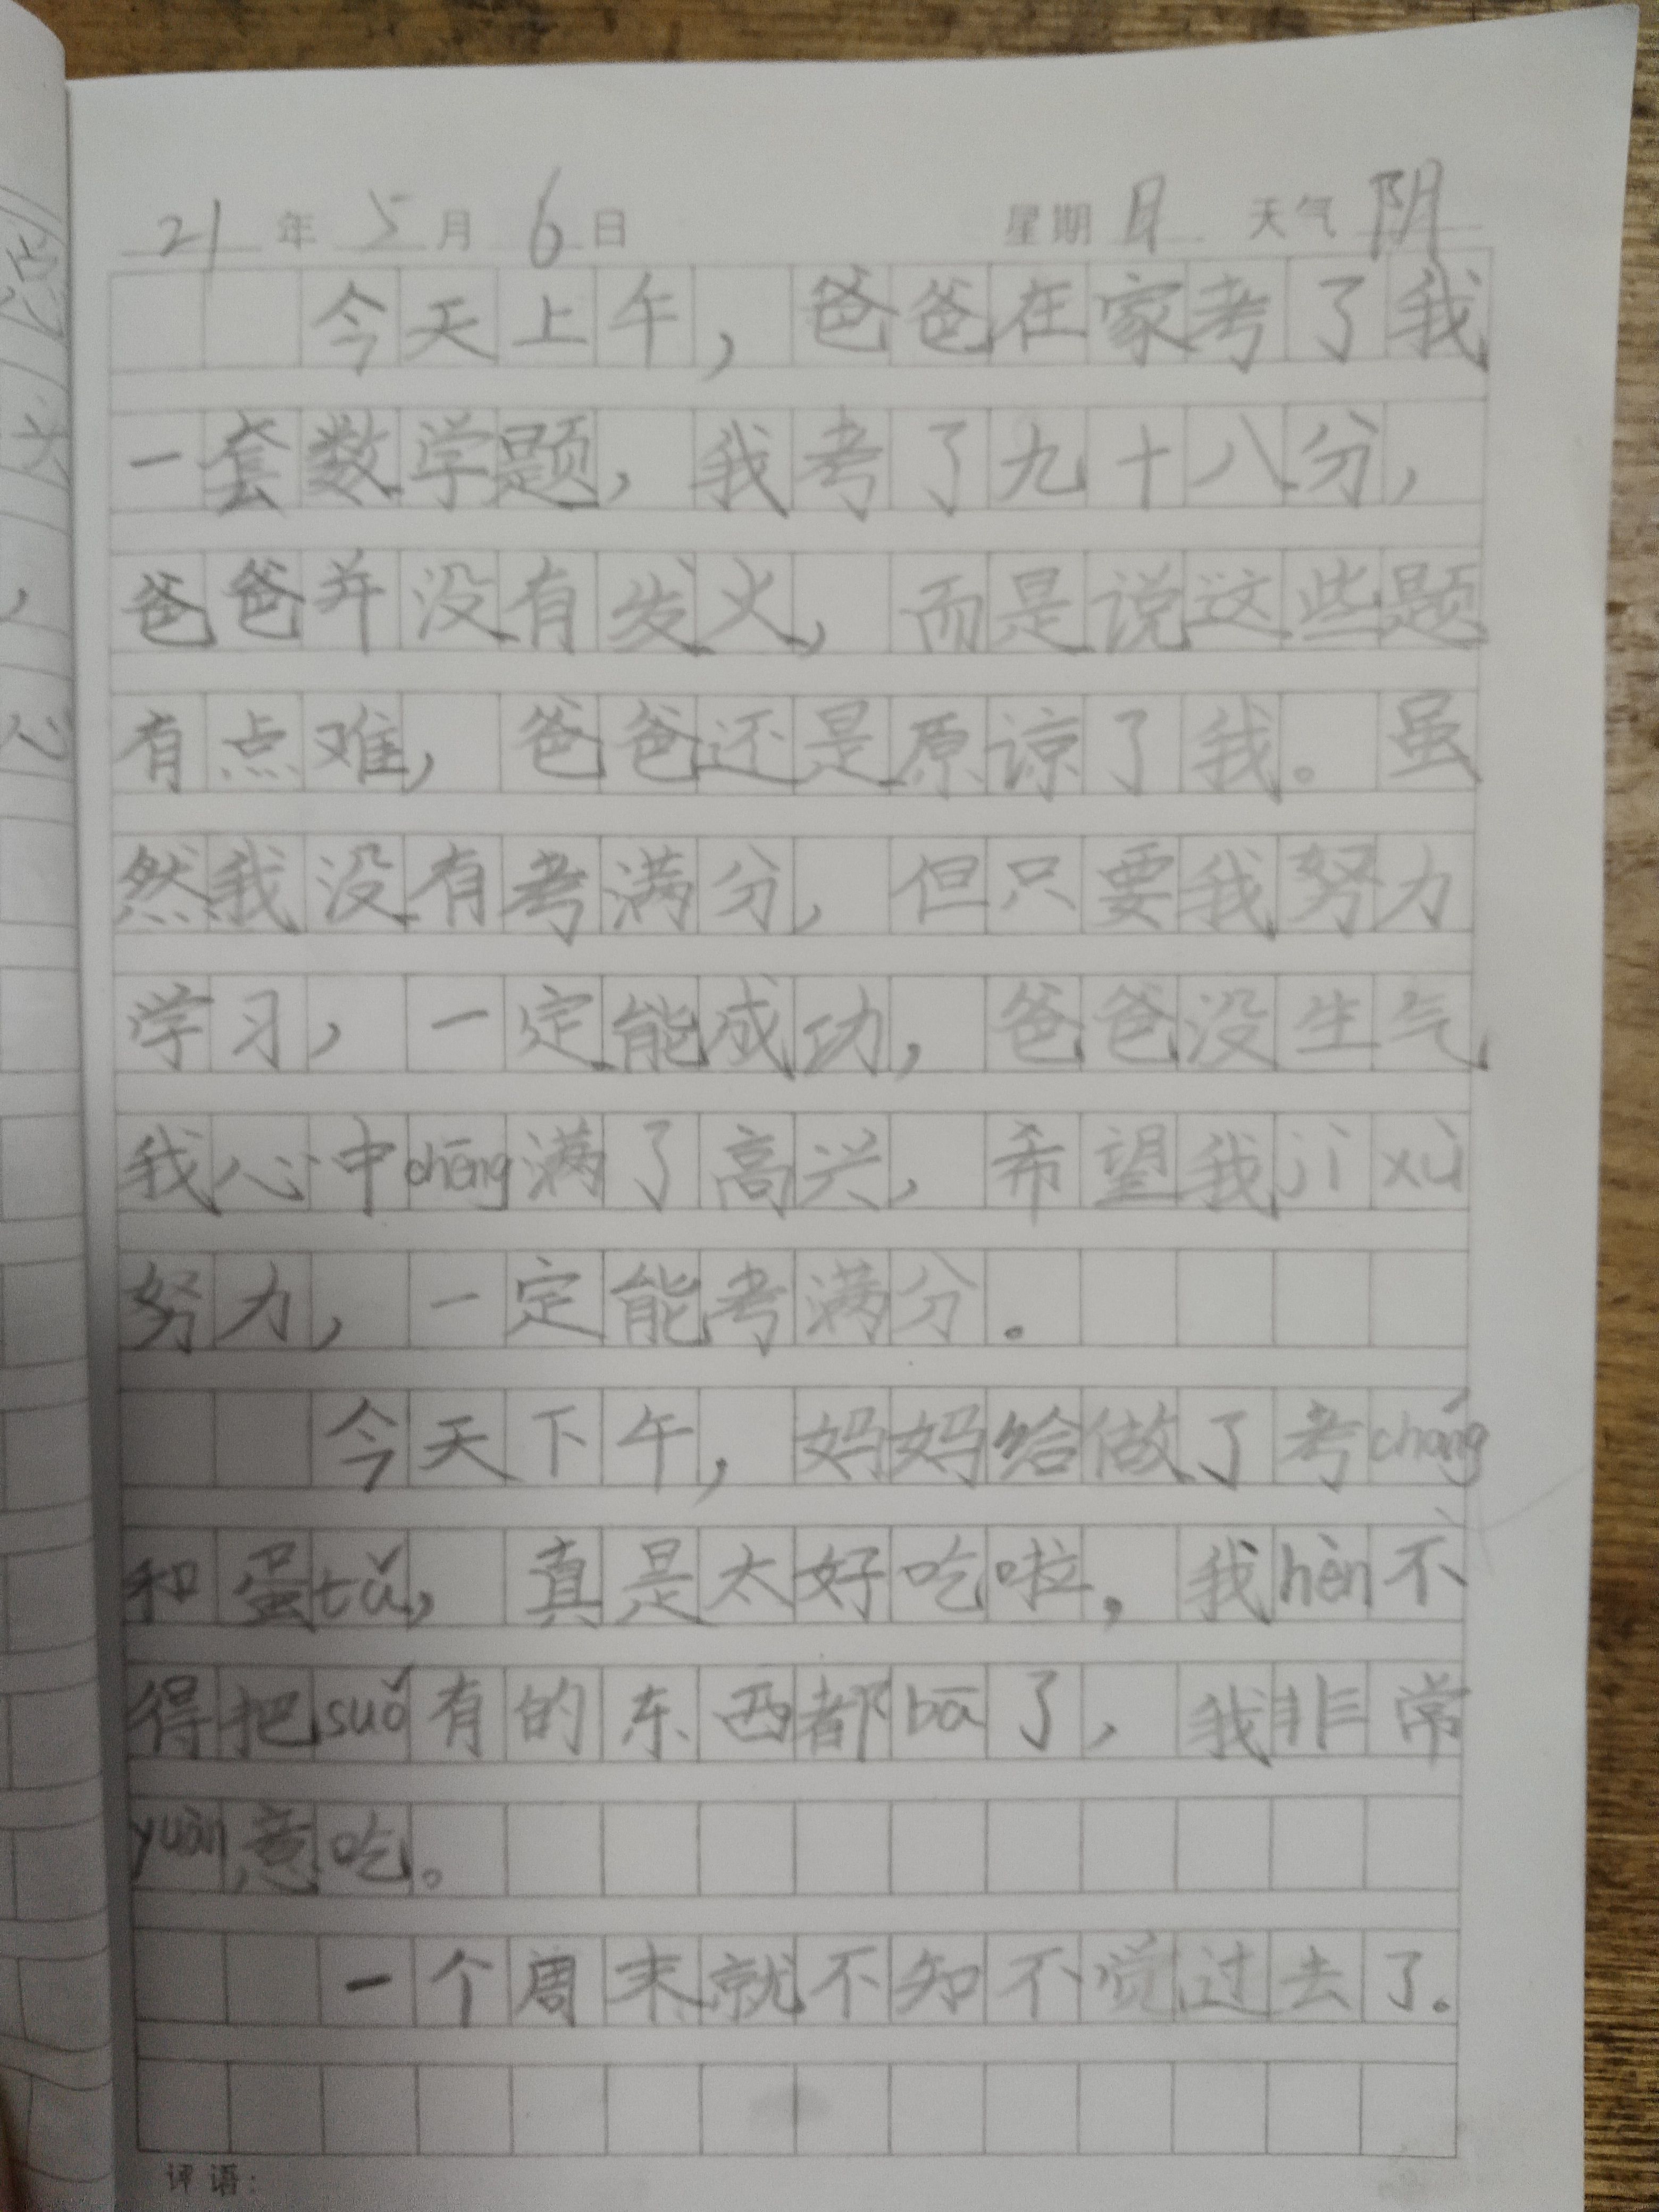 21年5月6日 星期日 天气阴
今天上午，爸爸在家考了我
一套数学题，我考了九十八分，
爸爸并没有发火，而是说这些题
有点难，爸爸还是原谅了我。虽
然我没有考满分，但只要我努力
学习，一定能成功，爸爸没生气
我心中chōng满了高兴，希望我jì xù
努力，一定能考满分。
今天下午，妈妈给做了考cháng
和蛋tǎ，真是太好吃啦，我hèn不
得把suǒ有的东西都bāo了，我非常
yuàn意吃。
一个周末就不知不觉过去了。
评语：